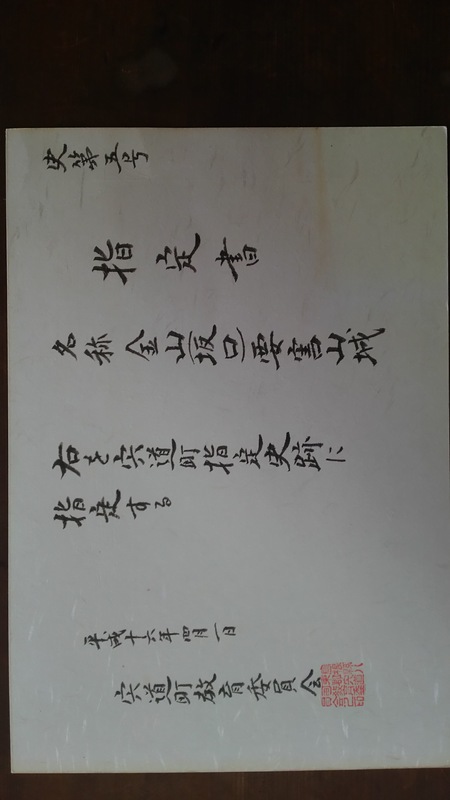 史第五号
指定書
名称 金山(坂口)要害山城
右を宍道町指定史跡に
指定する
平成十六年四月一日
宍道町教育委員会